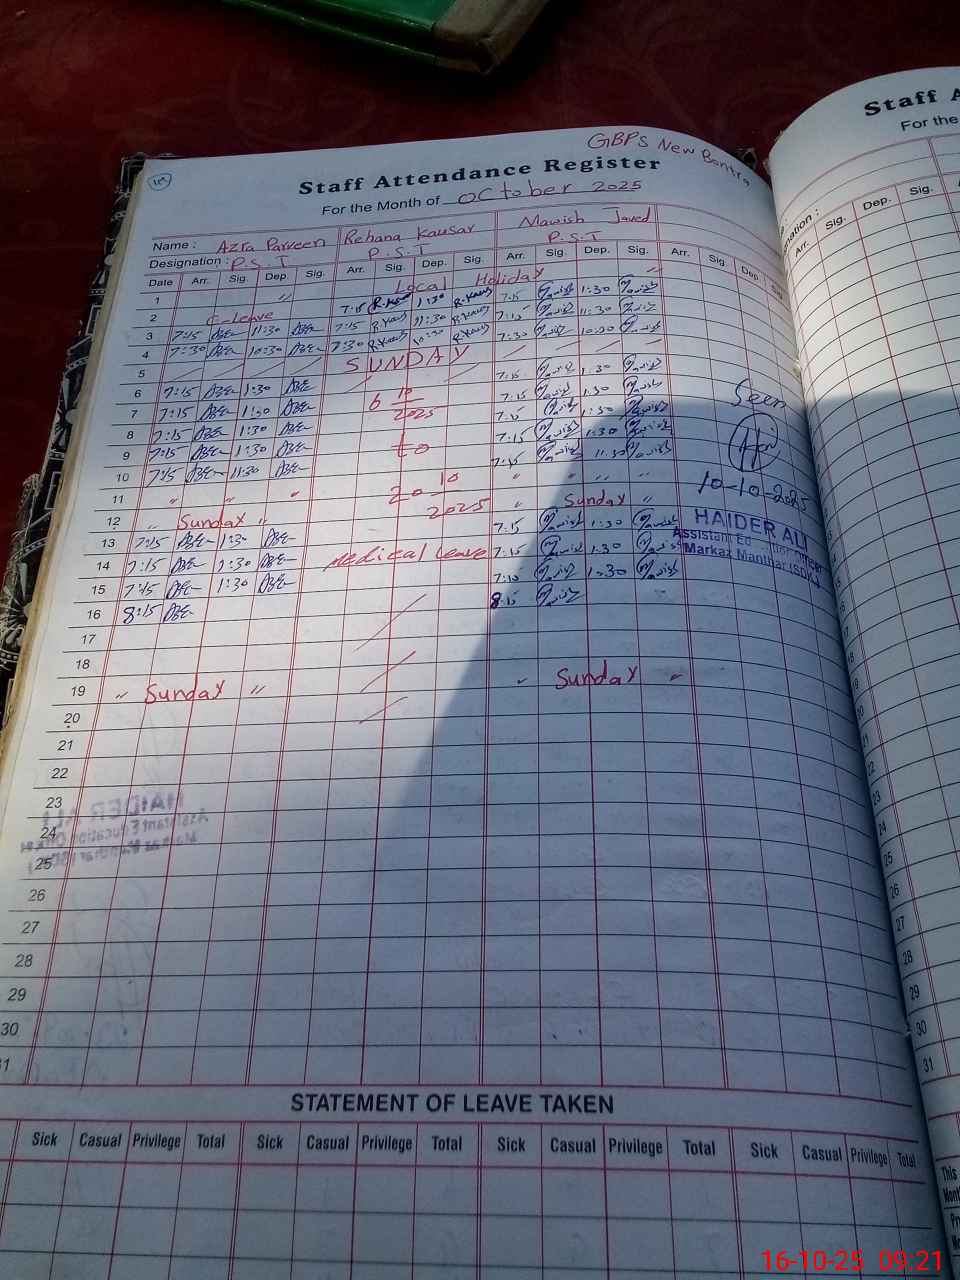 GBPS New Bontra
109
Staff Attendance Register
For the Month of October 2025
Name : Azra Parveen Rehana Kausar Mawish Javed
Designation : P.S.T P.S.T P.S.T
Date Arr. Sig. Dep. Sig. Arr. Sig. Dep. Sig. Arr. Sig. Dep. Sig. Arr. Sig. Dep. Sig.
1 " Local Holiday "
2 C-leave 7:15 R.Kausar 1:30 R.Kausar 7:15 Mawish 1:30 Mawish
3 7:15 11:30 7:15 R.Kausar 11:30 R.Kausar 7:15 Mawish 11:30 Mawish
4 7:30 10:30 7:30 R.Kausar 10:30 R.Kausar 7:30 Mawish 10:30 Mawish
5 SUNDAY
6 7:15 1:30 6 10 2025 7:15 Mawish 1:30 Mawish
7 7:15 1:30 7:15 Mawish 1:30 Mawish
8 7:15 1:30 to 7:15 Mawish 1:30 Mawish
9 7:15 1:30 7:15 Mawish 1:30 Mawish
10 7:15 11:30 20 10 2025 7:15 Mawish 11:30 Mawish
11 " " " " " " "
12 " Sunday " " Sunday "
13 7:15 1:30 7:15 Mawish 1:30 Mawish
14 7:15 1:30 Medical leave 7:15 Mawish 1:30 Mawish
15 7:15 1:30 7:15 Mawish 1:30 Mawish
16 8:15 8:15 Mawish
17
18
19 " Sunday " " Sunday "
20
21
22
23
24
25
26
27
28
29
30
31
Seen
10-10-2025
HAIDER ALI
Assistant Education Officer
Markaz Manthar (SDK)
STATEMENT OF LEAVE TAKEN
Sick Casual Privilege Total Sick Casual Privilege Total Sick Casual Privilege Total Sick Casual Privilege Total
Staff A
For the
Arr. Sig. Dep. Sig.
16-10-25 09:21